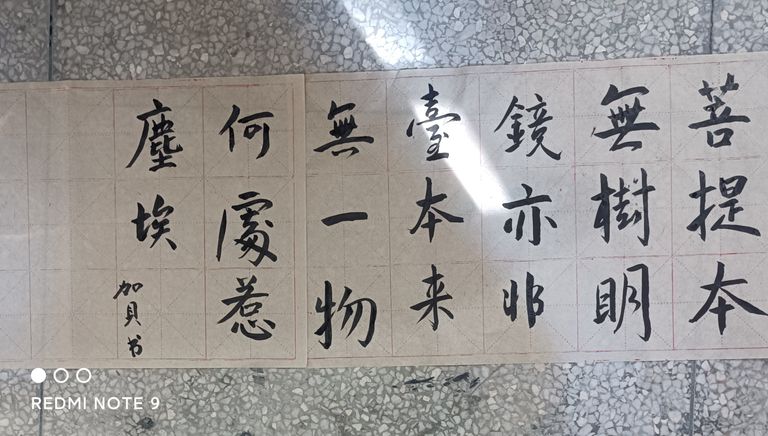 菩提本
無樹明
鏡亦非
臺本来
無一物
何處惹
塵埃
加贝书
REDMI NOTE 9